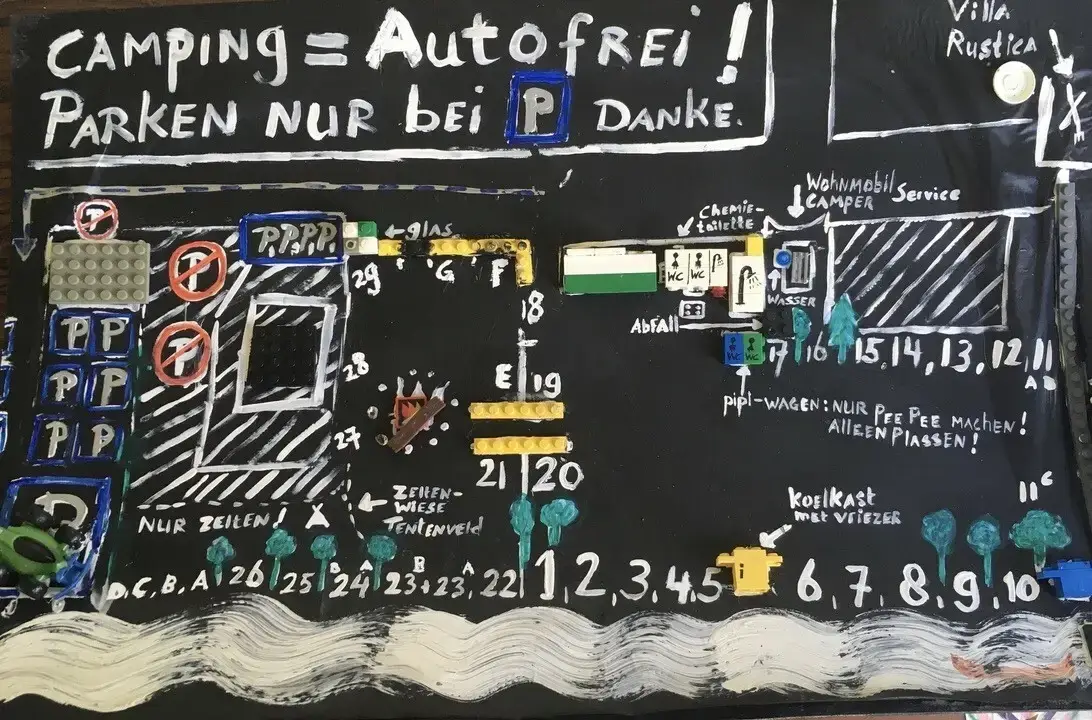 CAMPING = AUTOFREI!
PARKEN NUR bei P DANKE.
Villa
Rustica
X
P
P,P,P,P,
←glas
29
G
F
Chemie-
toilette
Wohnmobil
CAMPER Service
WC WC
WASSER
P
P
P P
P P
P P
P
18
Abfall
WC WC
17 16 15, 14, 13, 12, 11
A B
28
E 19
pipi-WAGEN: NUR PEE PEE MACHEN!
ALLEEN PLASSEN!
27
21 20
ZELTEN-
WIESE
TENTENVELD
NUR ZELTEN! X
KOELKAST
met VRIEZER
11C
D, C, B, A 26 25 B 24 A 23 B 23 A 22 1, 2, 3, 4, 5 i 6, 7, 8, 9, 10